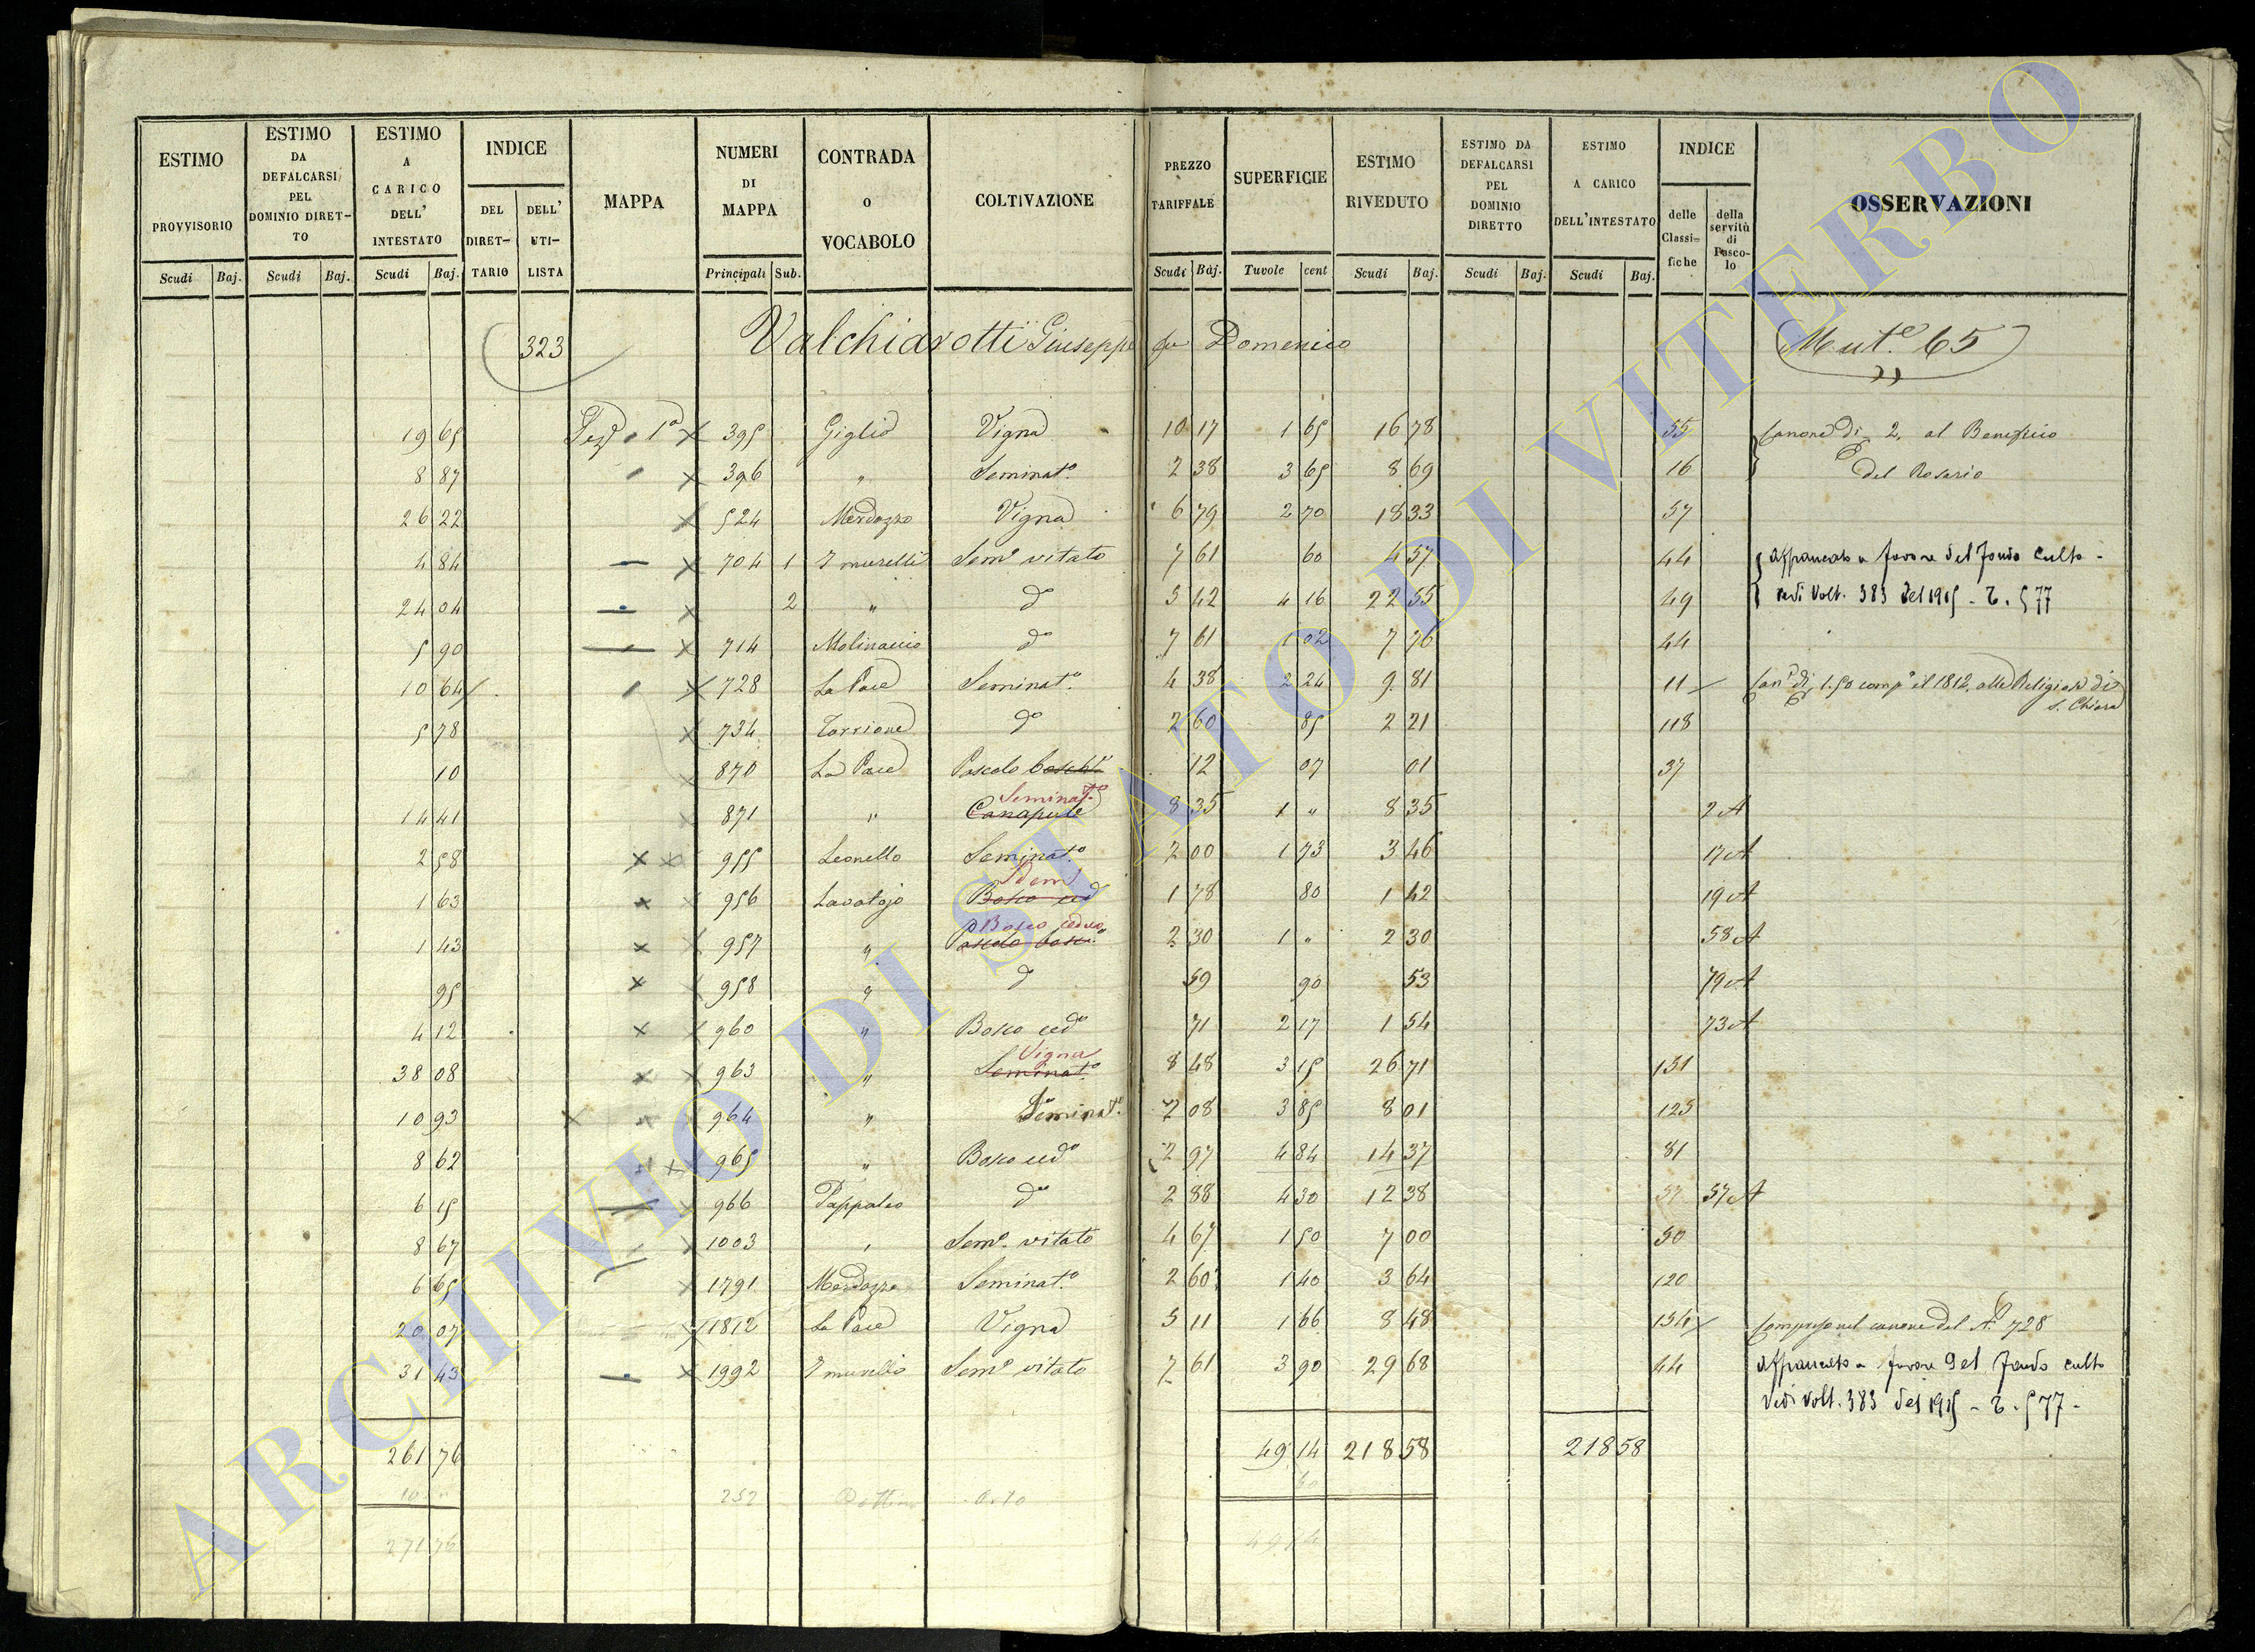 ESTIMO PROVVISORIO
ESTIMO DA DEFALCARSI PEL DOMINIO DIRET-TO
ESTIMO A CARICO DELL' INTESTATO
INDICE
DEL DIRET-TARIO
DELL' UTI-LISTA
MAPPA
NUMERI DI MAPPA
CONTRADA O VOCABOLO
COLTIVAZIONE
PREZZO TARIFFALE
SUPERFICIE
ESTIMO RIVEDUTO
ESTIMO DA DEFALCARSI PEL DOMINIO DIRETTO
ESTIMO A CARICO DELL'INTESTATO
INDICE
delle Classi=fiche
della servitù di Pasco-lo
OSSERVAZIONI
Scudi Baj. Scudi Baj. Scudi Baj. Principali Sub. Scudi Baj. Tavole cent Scudi Baj. Scudi Baj. Scudi Baj.
323 Valchiarotti Giuseppe qu Domenico Mut.e 65
19 65 1a 395 Giglio Vigna 10 17 1 65 16 78 55 Canone di 2, al Beneficio
8 87 396 " Seminat.o 2 38 3 65 8 69 16 del Rosario
26 22 524 Merdozzo Vigna 6 79 2 70 18 33 57
4 84 704 1 I murelli Sem.o vitato 7 61 60 4 57 44 Affrancato a favore del Fondo Culto -
24 04 2 " do 5 42 4 16 22 55 49 vedi Volt. 383 del 1915 - T. 577
5 90 714 Molinaccio do 7 61 1 02 7 76 44
10 64 728 La Pace Seminat.o 4 38 2 24 9 81 11 Can.e di 1.50 comp.o il 1812, alle Religiose di
S. Chiara
5 78 734 Torrione do 2 60 85 2 21 118
10 870 La Pace Pascolo bosch.o 12 07 01 37
Seminat.o
14 41 871 " Canapule 8 35 1 " 8 35 2 A
2 58 955 Leonello Seminat.o 2 00 1 73 3 46 17 A
Idem
1 63 956 Lavatojo Bosco ced 1 78 80 1 42 19 A
Bosco ceduo
1 43 957 " Pascolo bosc.o 2 30 1 " 2 30 58 A
95 958 " do 59 90 53 79 A
4 12 960 " Bosco ced.o 71 2 17 1 54 73 A
Vigna
38 08 963 " Seminat.o 8 48 3 15 26 71 131
10 93 964 " Seminat.o 2 08 3 85 8 01 125
8 62 965 " Bosco ced.o 2 97 4 84 14 37 81
6 15 966 Pappaleo do 2 88 4 30 12 38 57 57 A
8 67 1003 " Sem.o vitato 4 67 1 50 7 00 50
6 65 1791 Merdozzo Seminat.o 2 60 1 40 3 64 120
20 07 1812 La Pace Vigna 5 11 1 66 8 48 134 Compreso nel canone del N.o 728
31 43 1992 I murelli Sem.o vitato 7 61 3 90 29 68 44 Affrancato a favore del Fondo culto
Vedi Volt. 383 del 1915 - T. 577 -
261 76 49 14 218 58 218 58
10 252 Orto
271 76
ARCHIVIO DI STATO DI VITERBO